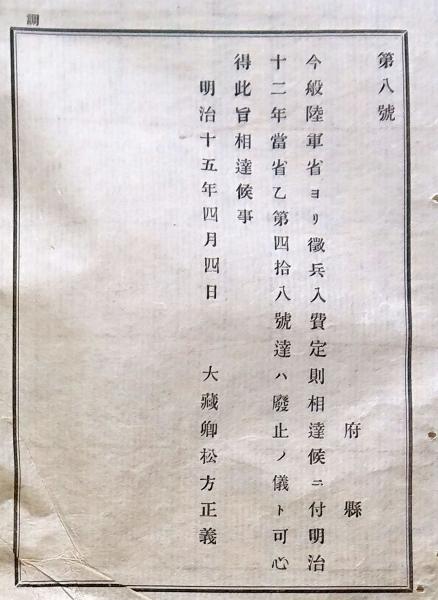 第八號
府縣
今般陸軍省ヨリ徵兵入費定則相達候ニ付明治
十二年當省乙第四拾八號達ハ廢止ノ儀ト可心
得此旨相達候事
明治十五年四月四日　大藏卿松方正義